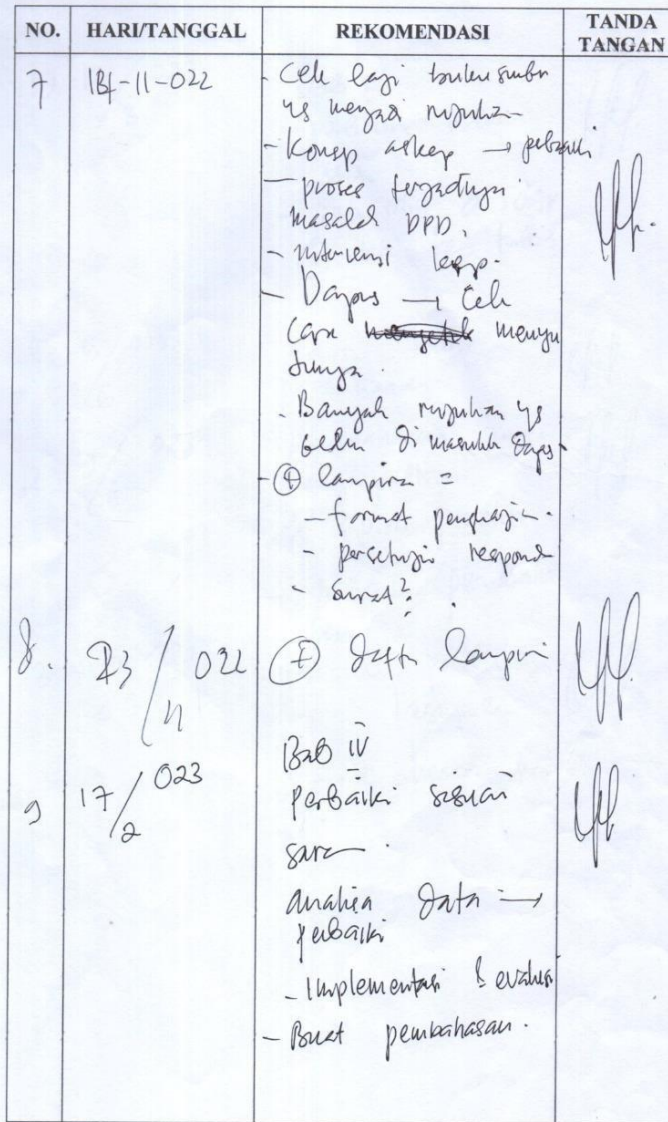 NO. HARI/TANGGAL REKOMENDASI TANDA TANGAN
7 18-11-022 - Cek lagi buku sumber
yg menjadi rujukan
- Konsep askep → perbaiki
- proses terjadinya
masalah DPD.
- intervensi kep.
- Dapus → Cek
cara menyu
sunnya.
- Banyak rujukan yg
belum di masukk dapus
- ⊕ lampiran =
- format pengkajian.
- persetujuan respond
- surat?
8. 23/11 022 ⊕ daftar lampiran
9 17/2 023 Bab IV
perbaiki sesuai
saran
analisa data →
perbaiki
- Implementasi & evaluasi
- Buat pembahasan.